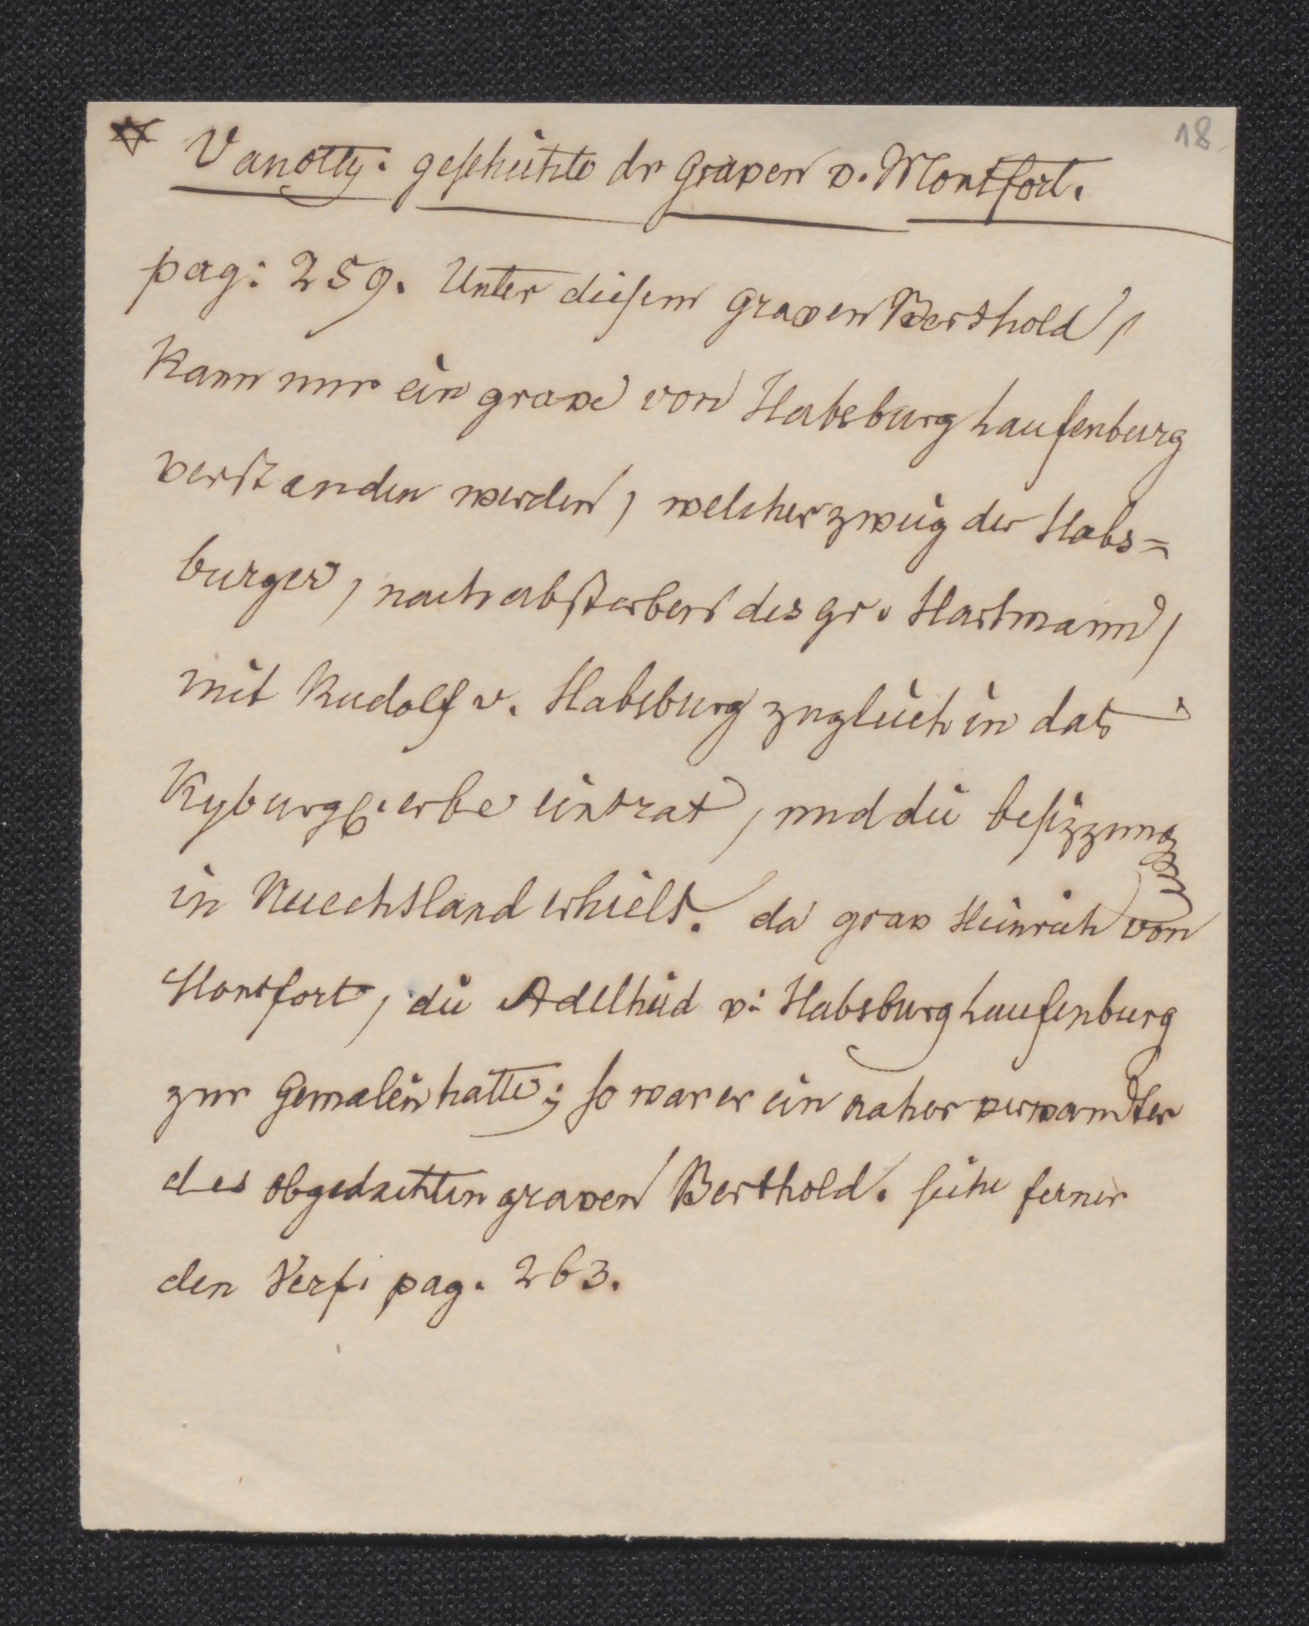 18.
☆ Vanotty: geschichte dr graven v. Montfort.
pag: 259. Unter diesem graven Berthold,
kann nur ein grave von Habsburg Laufenburg
verstanden werden, welcher zweig der Habs=
burger, nach absterben des gr. Hartmann,
mit Rudolf v. Habsburg zugleich in das
Kyburg. erbe eintrat, und die besizzungen
in Nuechtland erhielt. da grav Heinrich von
Montfort, die Adelheid v: Habsburg Laufenburg
zur Gemalin hatte; so war er ein naher verwandter
des obgedachten graven Berthold. siehe ferner
den Verf. pag. 263.